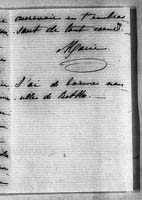 au revoir en t'embras
sant de tout coeur
Marie
J'ai de bonnes nou
velles de